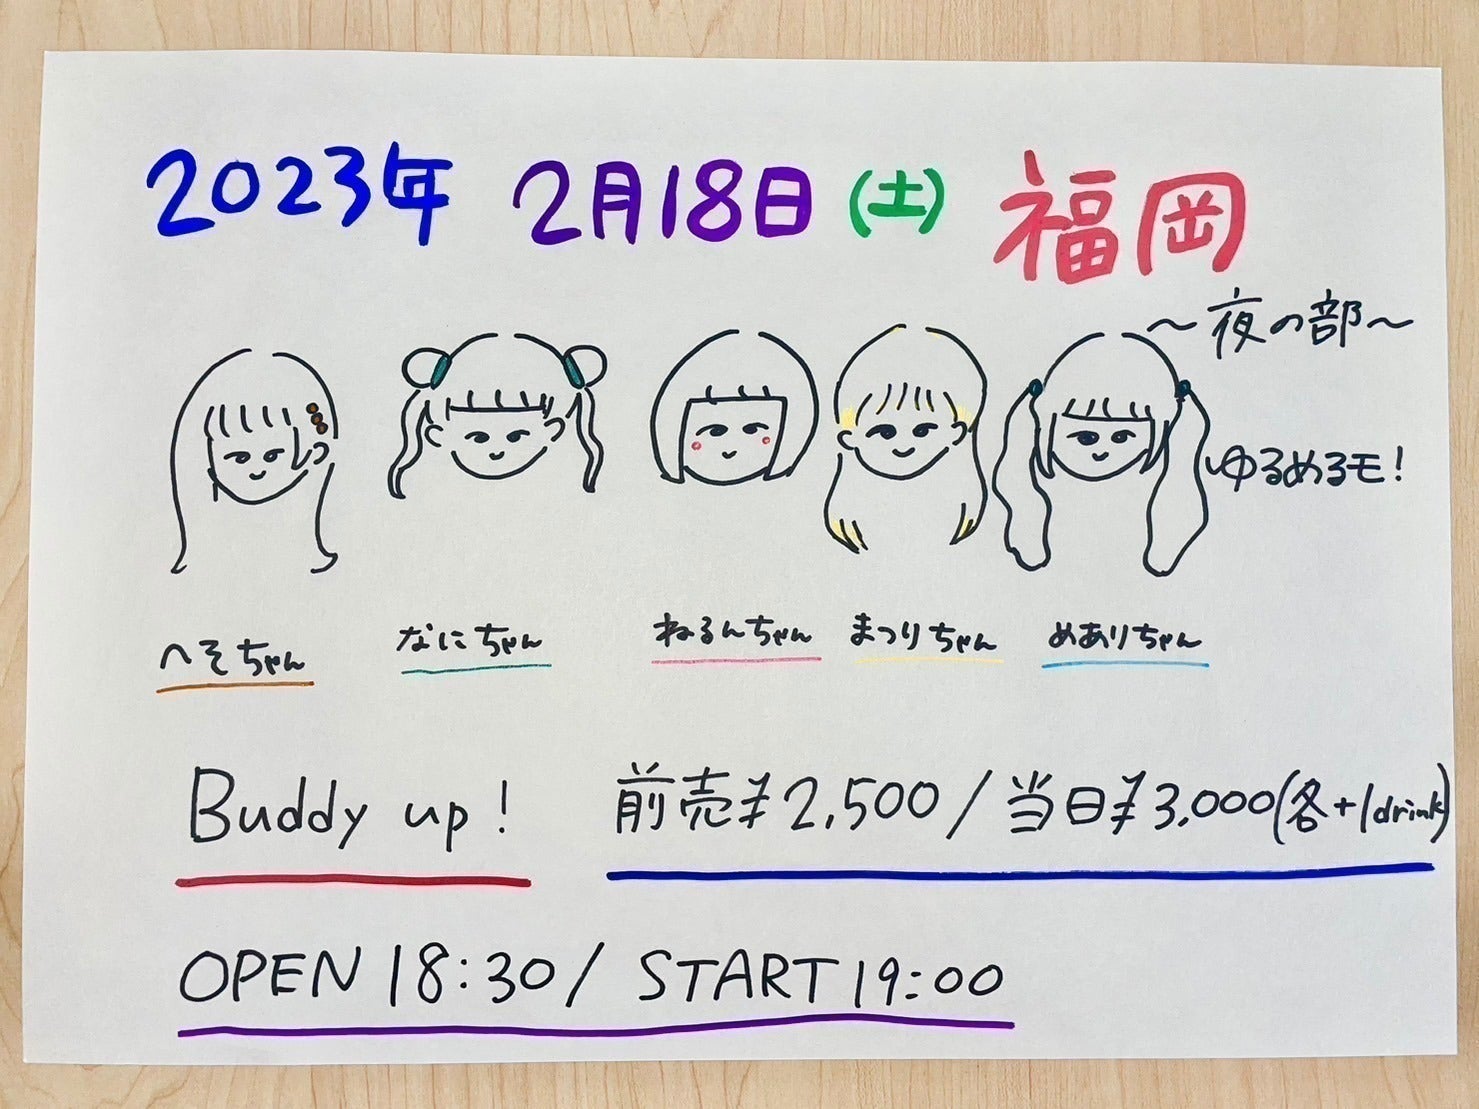 2023年 2月18日(土) 福岡
～夜の部～
ゆるめるモ!
へそちゃん なにちゃん ねるんちゃん まつりちゃん めありちゃん
Buddy up! 前売¥2,500/当日¥3,000(各+1drink)
OPEN 18:30/ START 19:00